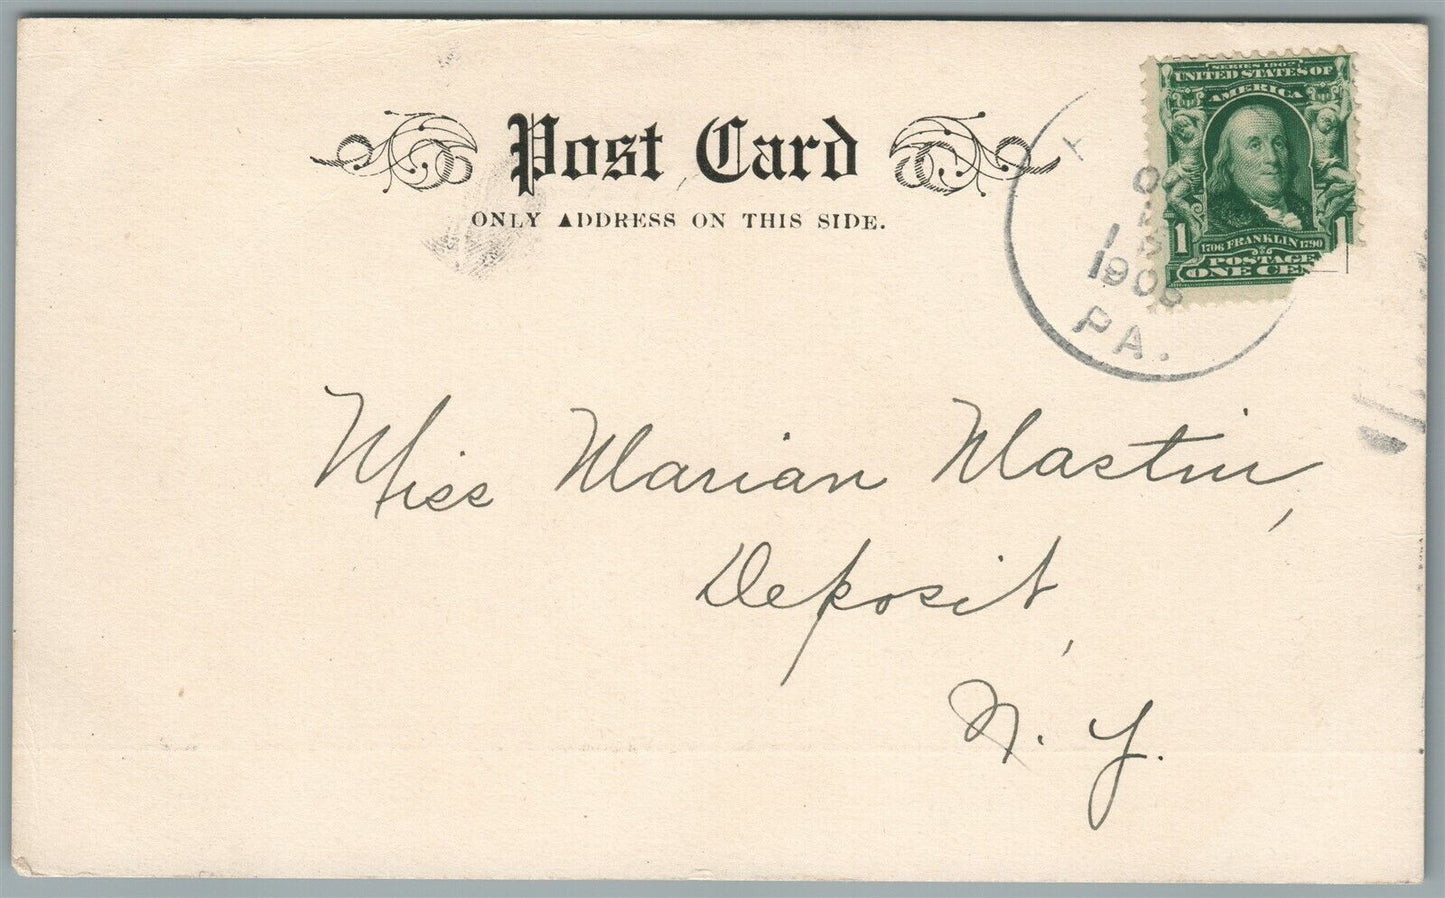 Post Card
ONLY ADDRESS ON THIS SIDE.
SERIES 1902
UNITED STATES OF
AMERICA
1 1
1706 FRANKLIN 1790
POSTAGE
ONE CEN
PA.
Miss Marian Mastin,
Deposit,
N. Y.